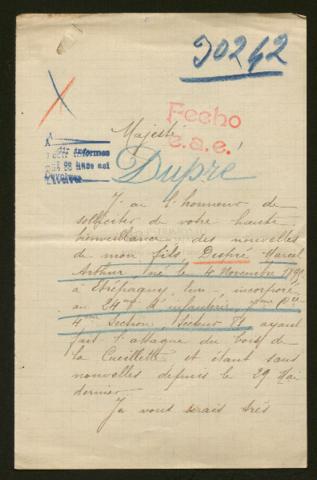 90242
Fecho
e.a.e.
Majesté,
Pedir informes
Dupré
J'ai l'honneur de
solliciter de votre haute
bienveillance des nouvelles
de mon fils Dupré Marcel
Arthur, né le 4 Novembre 1891
à Etrépagny, Eure, incorporé
au 24me d'infanterie, Cie
4me Section, Secteur ayant
fait l'attaque du bois de
la Cueillette et étant sans
nouvelles depuis le 29 Mai
dernier.
Je vous serais très